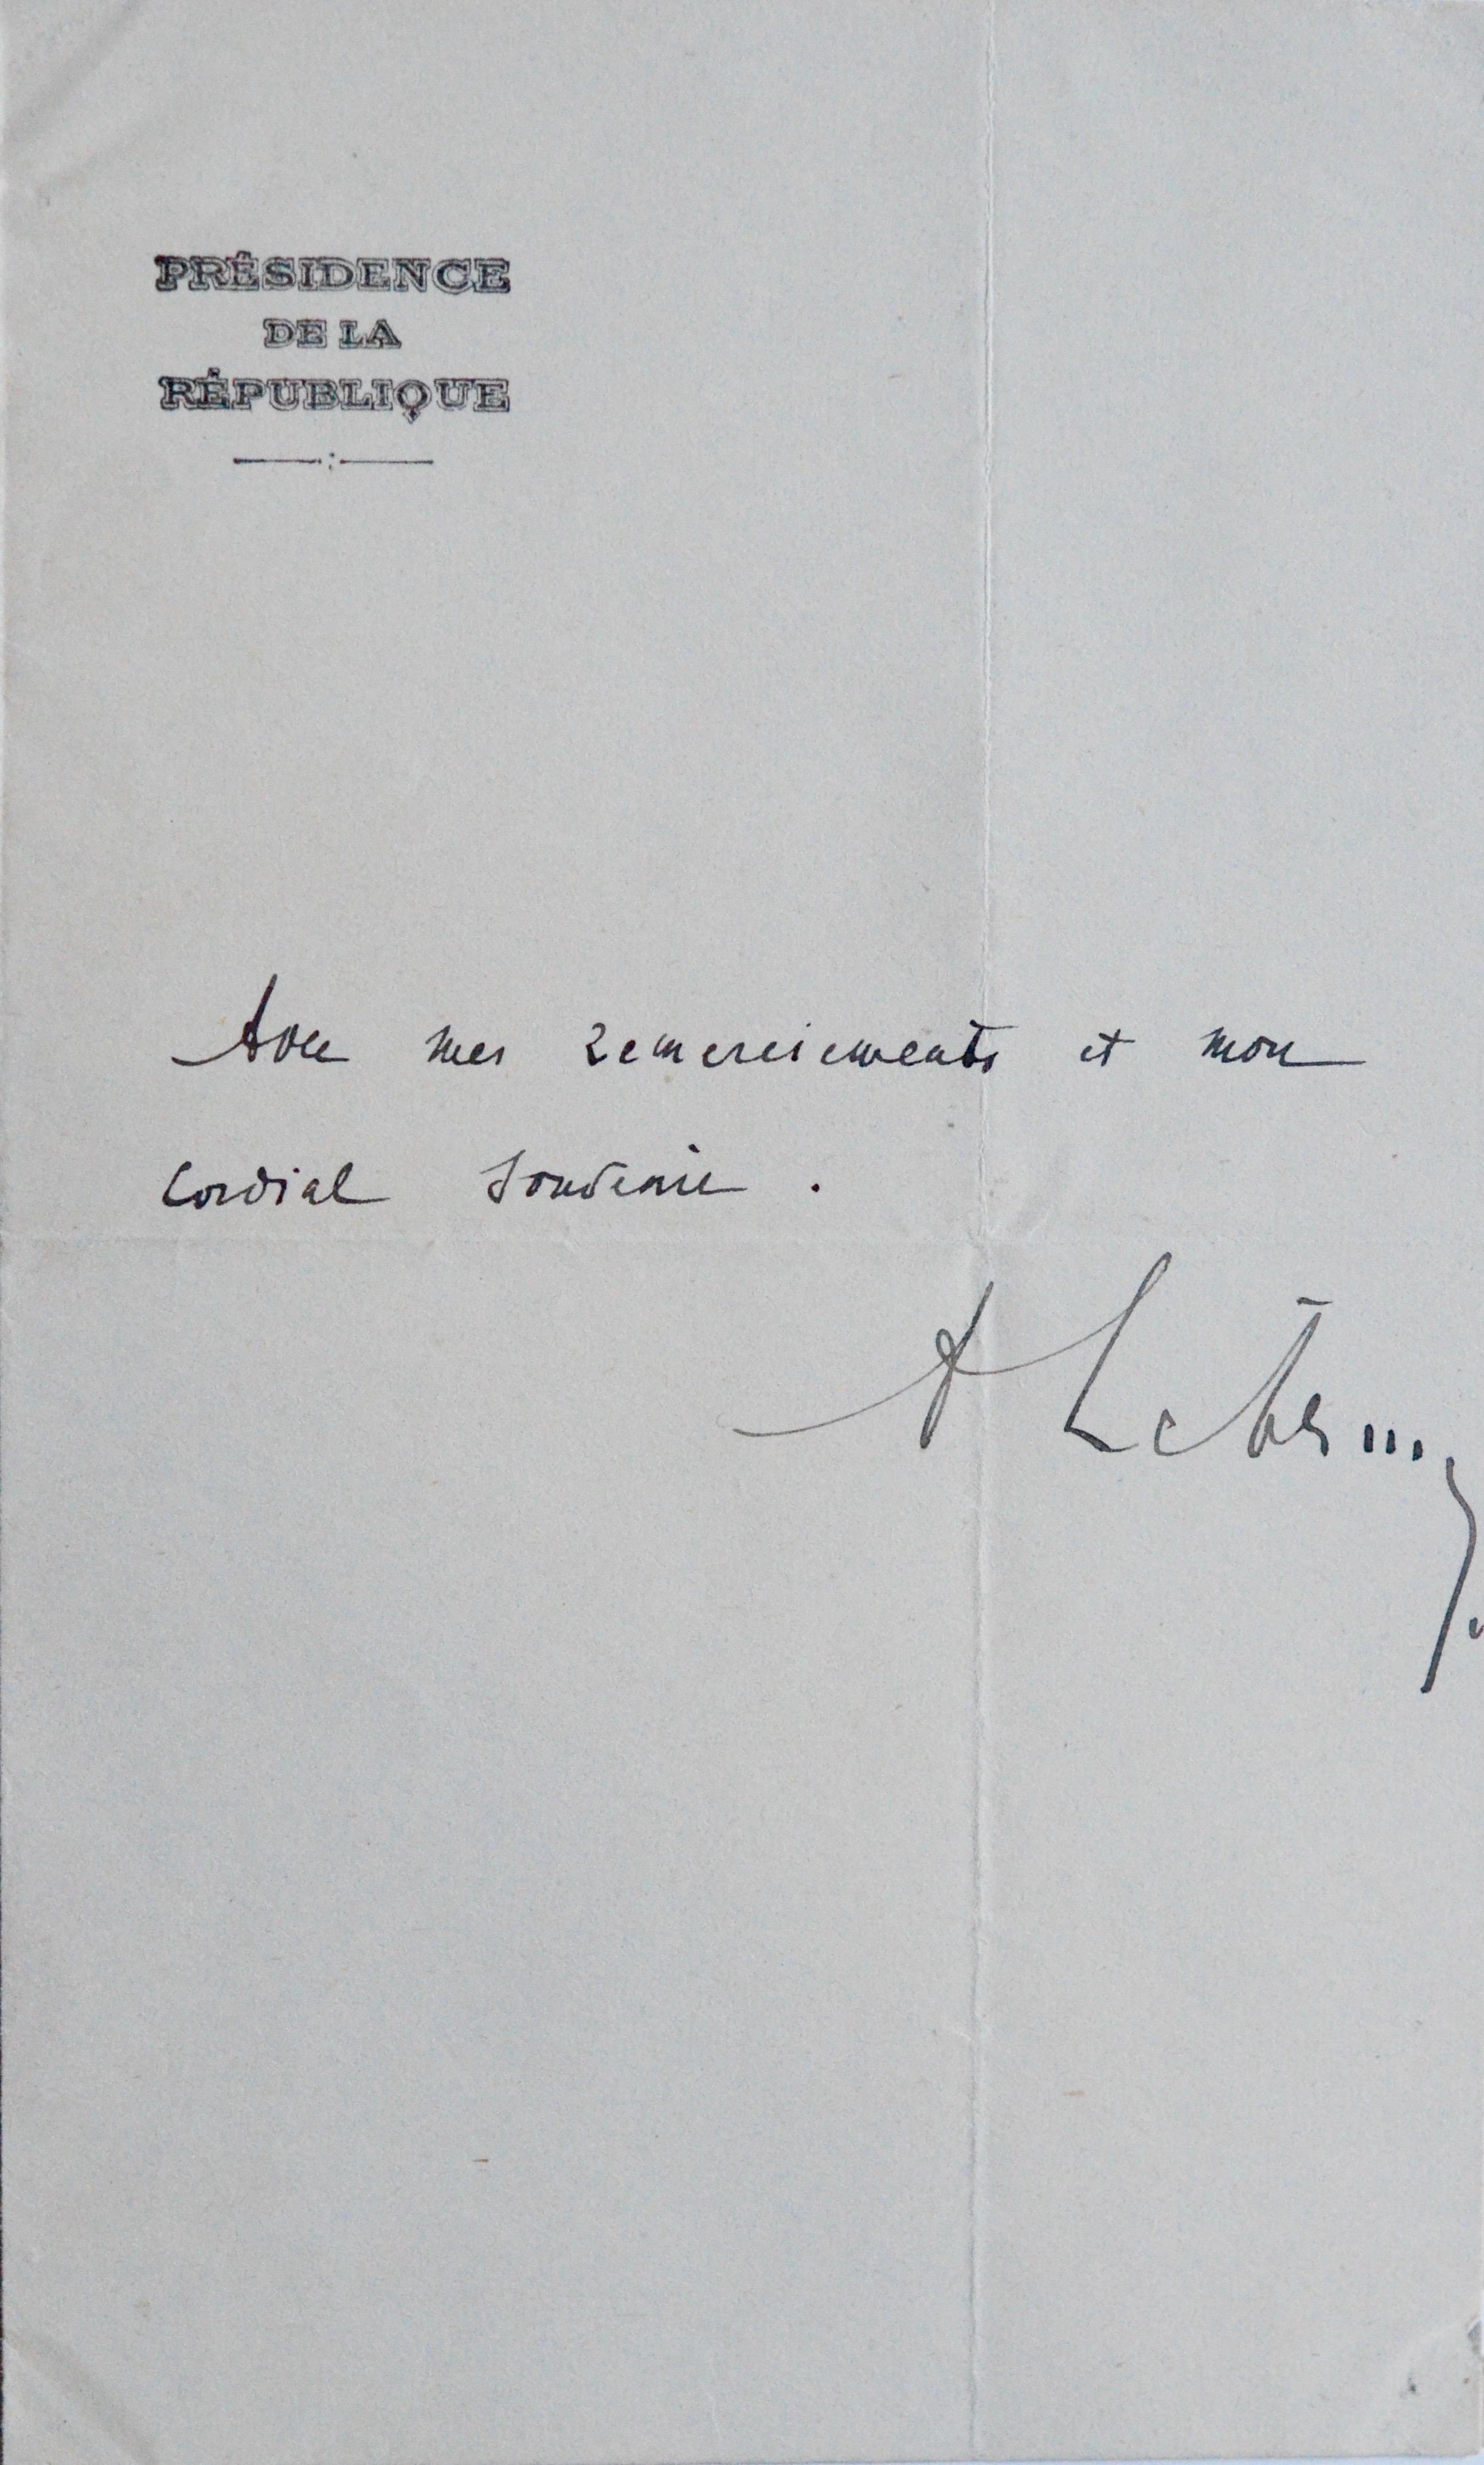 PRÉSIDENCE
DE LA
RÉPUBLIQUE
Avec mes remerciements et mon
cordial souvenir .
A Lebrun